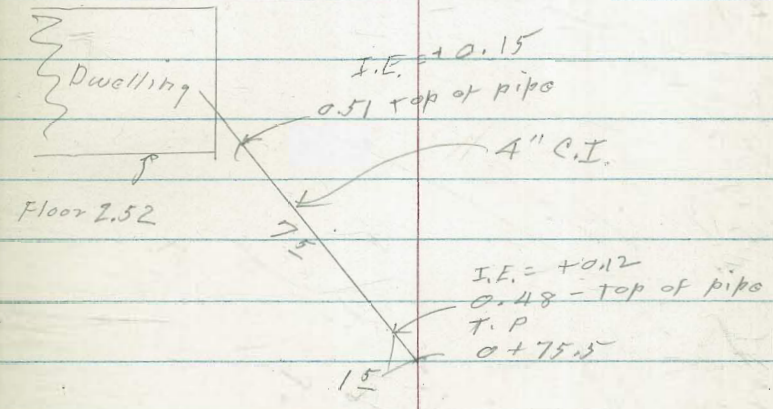 I.E. = +0.15
Dwelling
0.51 top of pipe
4" C.I.
Floor 2.52
7 5
I.E. = +0.12
0.48 - top of pipe
T.P
0+75.5
1 5